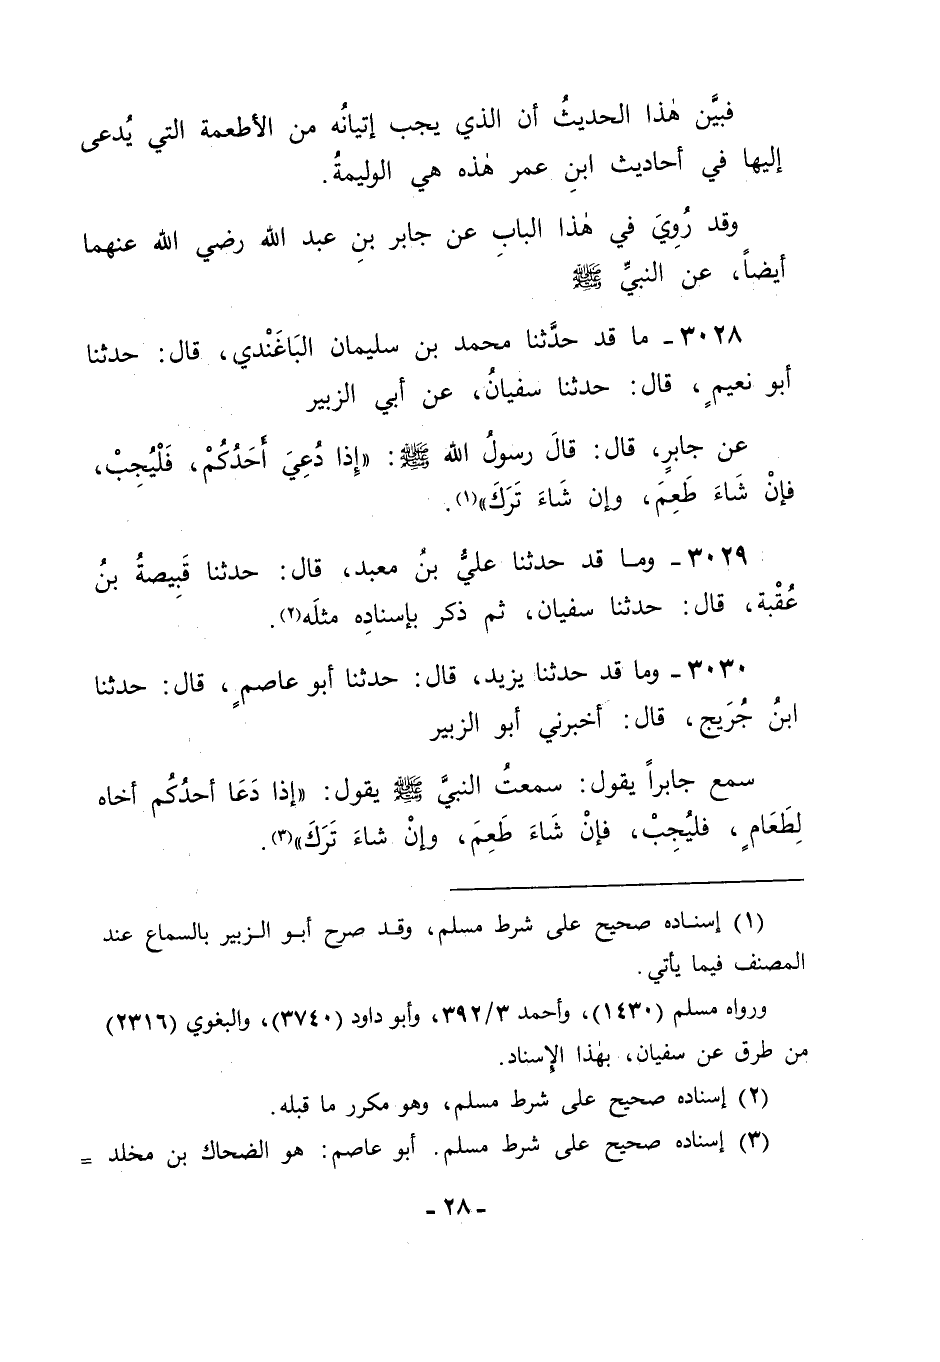 فبيَّن هٰذا الحديثُ أن الذي يجب إتيانُه من الأطعمة التي يُدعى
إليها في أحاديث ابنِ عمر هٰذه هي الوليمةُ.
وقد رُوِيَ في هٰذا البابِ عن جابر بنِ عبد الله رضي الله عنهما
أيضاً، عن النبيِّ ﷺ
٣٠٢٨ ـ ما قد حدَّثنا محمد بن سليمان البَاغَنْدي، قال: حدثنا
أبو نعيمٍ، قال: حدثنا سفيانُ، عن أبي الزبير
عن جابرٍ، قال: قالَ رسولُ الله ﷺ: «إِذا دُعِيَ أَحَدُكُمْ، فَلْيُجِبْ،
فإنْ شَاءَ طَعِمَ، وإن شَاءَ تَرَكَ»(١).
٣٠٢٩ ـ وما قد حدثنا عليُّ بنُ معبد، قال: حدثنا قَبِيصةُ بنُ
عُقْبة، قال: حدثنا سفيان، ثم ذكر بإسنادِه مثلَه(٢).
٣٠٣٠ ـ وما قد حدثنا يزيد، قال: حدثنا أبو عاصمٍ، قال: حدثنا
ابنُ جُرَيج، قال: أخبرني أبو الزبير
سمع جابراً يقول: سمعتُ النبيَّ ﷺ يقول: «إذا دَعَا أحدُكُم أخاه
لِطَعَامٍ، فليُجِبْ، فإنْ شَاءَ طَعِمَ، وإنْ شاءَ تَرَكَ»(٣).
(١) إسناده صحيح على شرط مسلم، وقد صرح أبو الزبير بالسماع عند
المصنف فيما يأتي.
ورواه مسلم (١٤٣٠)، وأحمد ٣٩٢/٣، وأبو داود (٣٧٤٠)، والبغوي (٢٣١٦)
من طرق عن سفيان، بهٰذا الإِسناد.
(٢) إسناده صحيح على شرط مسلم، وهو مكرر ما قبله.
(٣) إسناده صحيح على شرط مسلم. أبو عاصم: هو الضحاك بن مخلد =
ـ ٢٨ ـ